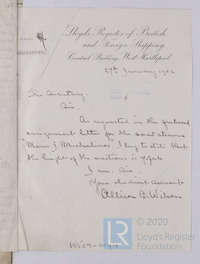 Lloyd's Register of British
and Foreign Shipping,
Central Building, West Hartlepool
27th January 1902
The Secretary,
Sir
As requested in the freeboard
assignment letter for the steamer
"Marie J. Michalinos", I beg to state that
the height of the sections is 7 feet
I am, Sir
Your obedient Servant
Allison B. Wilson
© 2020
Lloyd's Register
Foundation